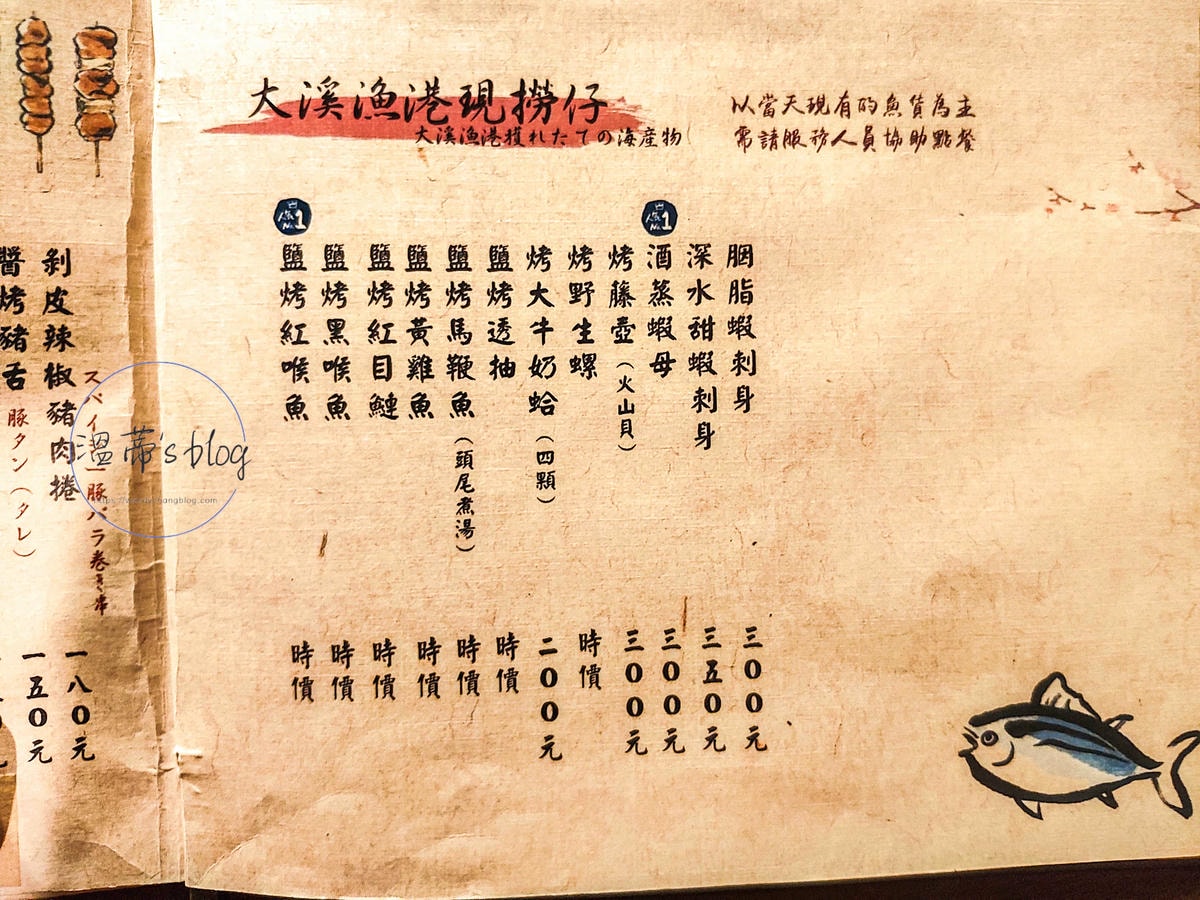 大溪漁港現撈仔
大溪漁港獲れたての海産物
以當天現有的魚貨為主
需請服務人員協助點餐
胭脂蝦刺身 三00元
深水甜蝦刺身 三五0元
人気No.1
酒蒸蝦母 三00元
烤藤壺(火山貝) 三00元
烤野生螺 時價
烤大牛奶蛤(四顆) 二00元
鹽烤透抽 時價
鹽烤馬鞭魚(頭尾煮湯) 時價
鹽烤黃雞魚 時價
鹽烤紅目鰱 時價
鹽烤黑喉魚 時價
人気No.1
鹽烤紅喉魚 時價
スパイシー豚バラ巻き串
剝皮辣椒豬肉捲 一八0元
豚タン(タレ)
醬烤豬舌 一五0元
溫蒂's blog